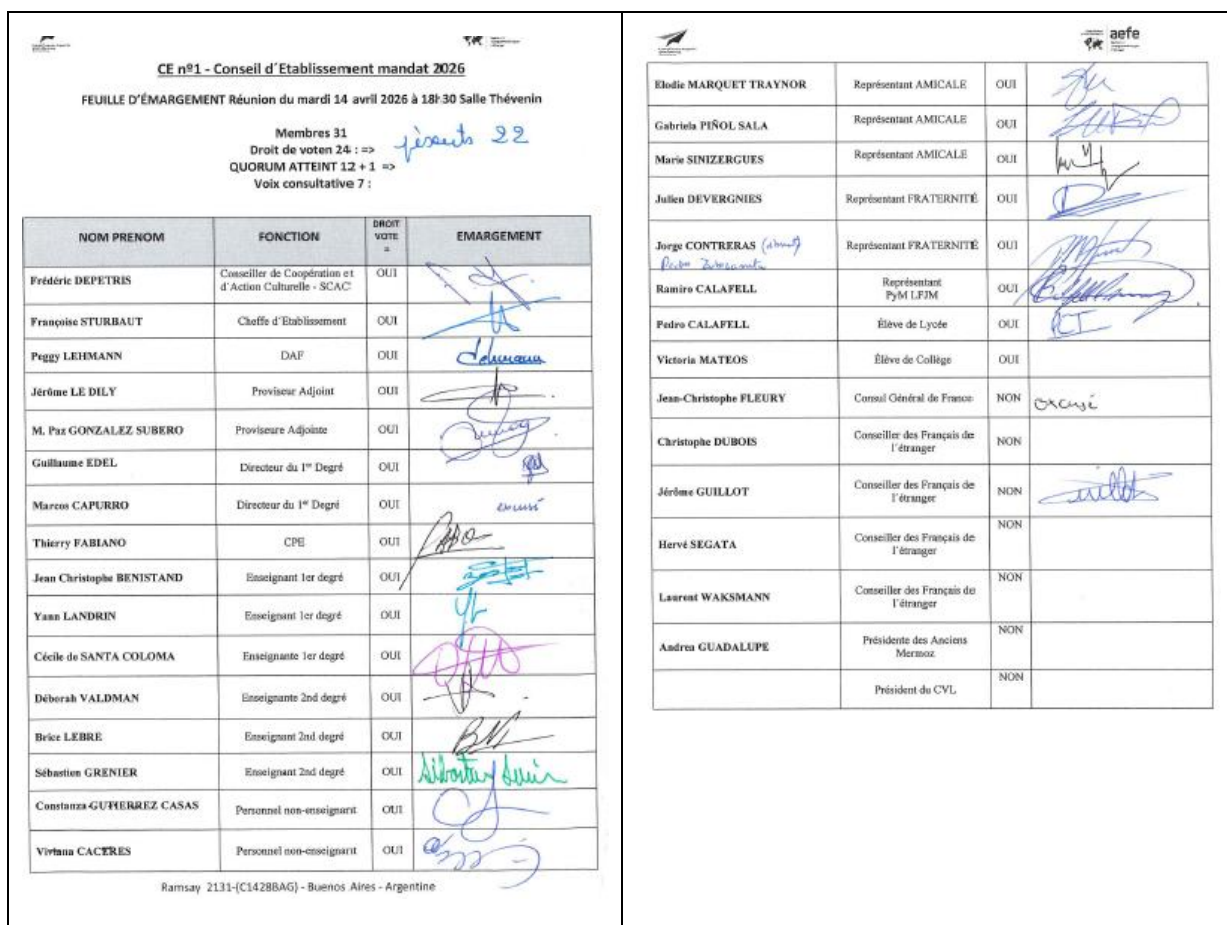 CE nº1 - Conseil d´Etablissement mandat 2026
FEUILLE D'ÉMARGEMENT Réunion du mardi 14 avril 2026 à 18h30 Salle Thévenin
Membres 31
Droit de voten 24 : => présents 22
QUORUM ATTEINT 12 + 1 =>
Voix consultative 7 :
NOM PRENOM FONCTION DROIT VOTE = EMARGEMENT
Frédéric DEPETRIS Conseiller de Coopération et d'Action Culturelle - SCAC OUI
Françoise STURBAUT Cheffe d'Etablissement OUI
Peggy LEHMANN DAF OUI
Jérôme LE DILY Proviseur Adjoint OUI
M. Paz GONZALEZ SUBERO Proviseure Adjointe OUI
Guillaume EDEL Directeur du 1er Degré OUI
Marcos CAPURRO Directeur du 1er Degré OUI excusé
Thierry FABIANO CPE OUI
Jean Christophe BENISTAND Enseignant 1er degré OUI
Yann LANDRIN Enseignant 1er degré OUI
Cécile de SANTA COLOMA Enseignante 1er degré OUI
Déborah VALDMAN Enseignante 2nd degré OUI
Brice LEBRE Enseignant 2nd degré OUI
Sébastien GRENIER Enseignant 2nd degré OUI
Constanza GUTIERREZ CASAS Personnel non-enseignant OUI
Viviana CACERES Personnel non-enseignant OUI
Ramsay 2131-(C1428BAG) - Buenos Aires - Argentine
aefe
Elodie MARQUET TRAYNOR Représentant AMICALE OUI
Gabriela PIÑOL SALA Représentant AMICALE OUI
Marie SINIZERGUES Représentant AMICALE OUI
Julien DEVERGNIES Représentant FRATERNITÉ OUI
Jorge CONTRERAS Représentant FRATERNITÉ OUI
Ramiro CALAFELL Représentant PyM LFJM OUI
Pedro CALAFELL Élève de Lycée OUI
Victoria MATEOS Élève de Collège OUI
Jean-Christophe FLEURY Consul Général de France NON excusé
Christophe DUBOIS Conseiller des Français de l'étranger NON
Jérôme GUILLOT Conseiller des Français de l'étranger NON
Hervé SEGATA Conseiller des Français de l'étranger NON
Laurent WAKSMANN Conseiller des Français de l'étranger NON
Andrea GUADALUPE Présidente des Anciens Mermoz NON
Président du CVL NON